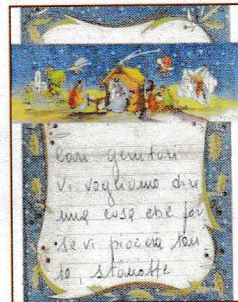 Cari genitori
vi vogliamo dire
una cosa che for
se vi piacerà tan
to, stanotte